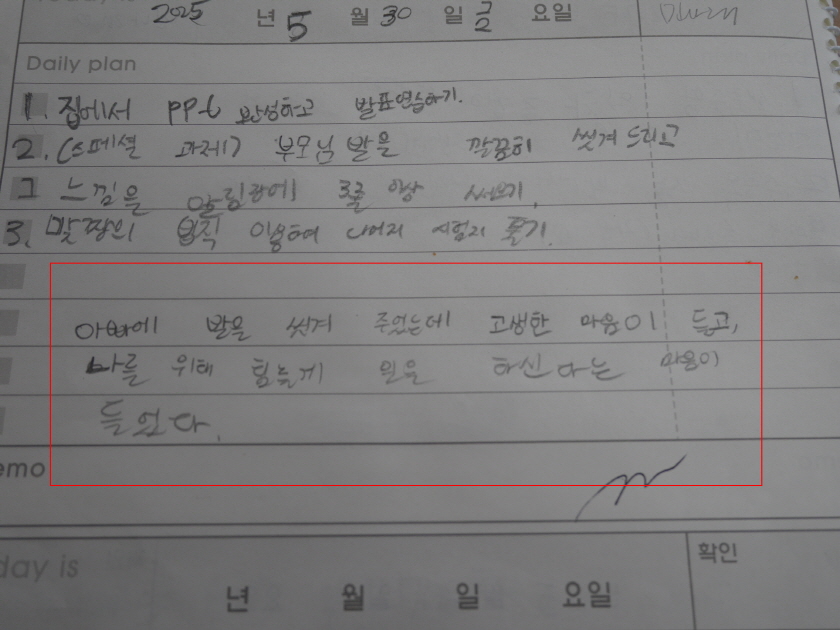 2025 년 5 월 30 일 금 요일
Daily plan
1. 집에서 PPt 완성하고 발표연습하기.
2. (스페셜 과제) 부모님 발을 깔끔히 씻겨 드리고
그 느낌을 알림장에 3줄 이상 써오기.
3. 맞짱의 법칙 이용하여 나머지 시험지 풀기.
아빠에 발을 씻겨 주었는데 고생한 마음이 들고,
나를 위해 힘들게 일을 하신다는 마음이
들었다.
emo
day is
확인
년 월 일 요일